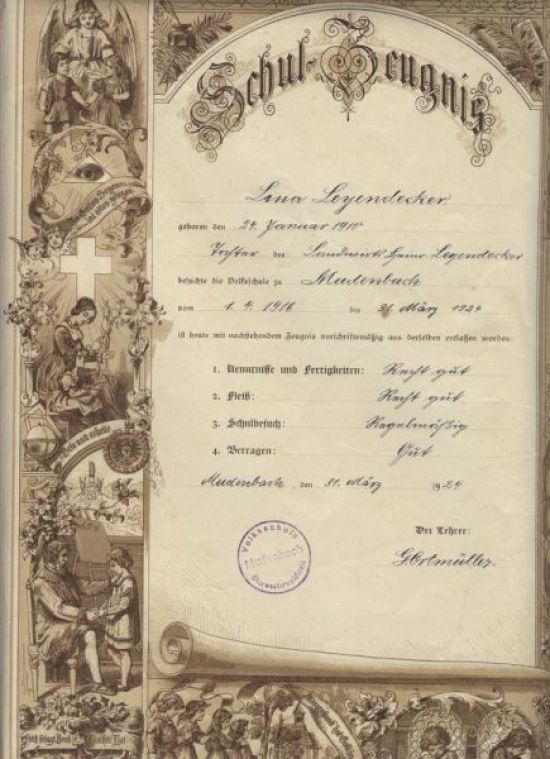 Schul-Zeugnis
Lena Leyendecker
geboren den 24. Januar 1910
Tochter des Landwirts Heinr. Leyendecker
besuchte die Volksschule zu Mudenbach
vom 1. 4. 1916 bis 31. März 1924
ist heute mit nachstehendem Zeugnis vorschriftsmäßig aus derselben entlassen worden:
1. Kenntnisse und Fertigkeiten: Recht gut
2. Fleiß: Recht gut
3. Schulbesuch: Regelmäßig
4. Betragen: Gut
Mudenbach, den 31. März 1924
Der Lehrer:
Volksschule
Mudenbach
Oberwesterwaldkreis